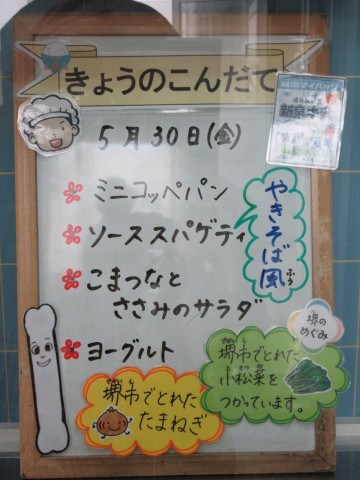 きょうのこんだて
5月30日(金)
ミニコッペパン
ソーススパゲティ
やきそば風
ふう
こまつなと
ささみのサラダ
ヨーグルト
堺の
めぐみ
堺市でとれた
小松菜を
つかっています。
堺市でとれた
たまねぎ